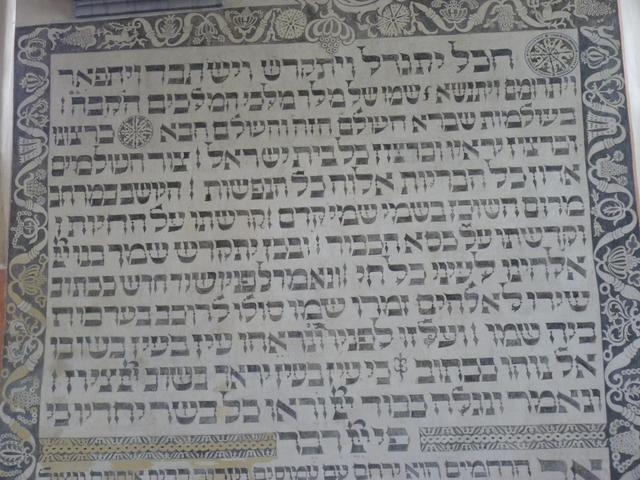 הכל יתגדל ויתקדש וישתבח ויתפאר
ויתרומם ויתנשא שמו של מלך מלכי המלכים הקבה
בעולמות שברא העולם הזה והעולם הבא כרצונו
וכרצון יראיו וכרצון כל בית ישראל צור העולמים
אדון כל הבריות אלוה כל הנפשות היושב במרחבי
מרום השוכן בשמי שמי קדם קדושתו על החיות
וקדושתו על כסא הכבוד ובכן יתקדש שמך בנו יי
אלהינו לעיני כל חי ונאמר לפניו שיר חדש ככתוב
שירו לאלהים זמרו שמו סולו לרוכב בערבות
ביה שמו ועלזו לפניו ונראהו עין בעין בשובו
אל נוהו ככתוב כי עין בעין יראו בשוב יי ציון
ונאמר ונגלה כבוד יי וראו כל בשר יחדיו כי
פי יי דבר
אב הרחמים הוא ירחם עם עמוסים ויזכור ברית איתנים ויציל